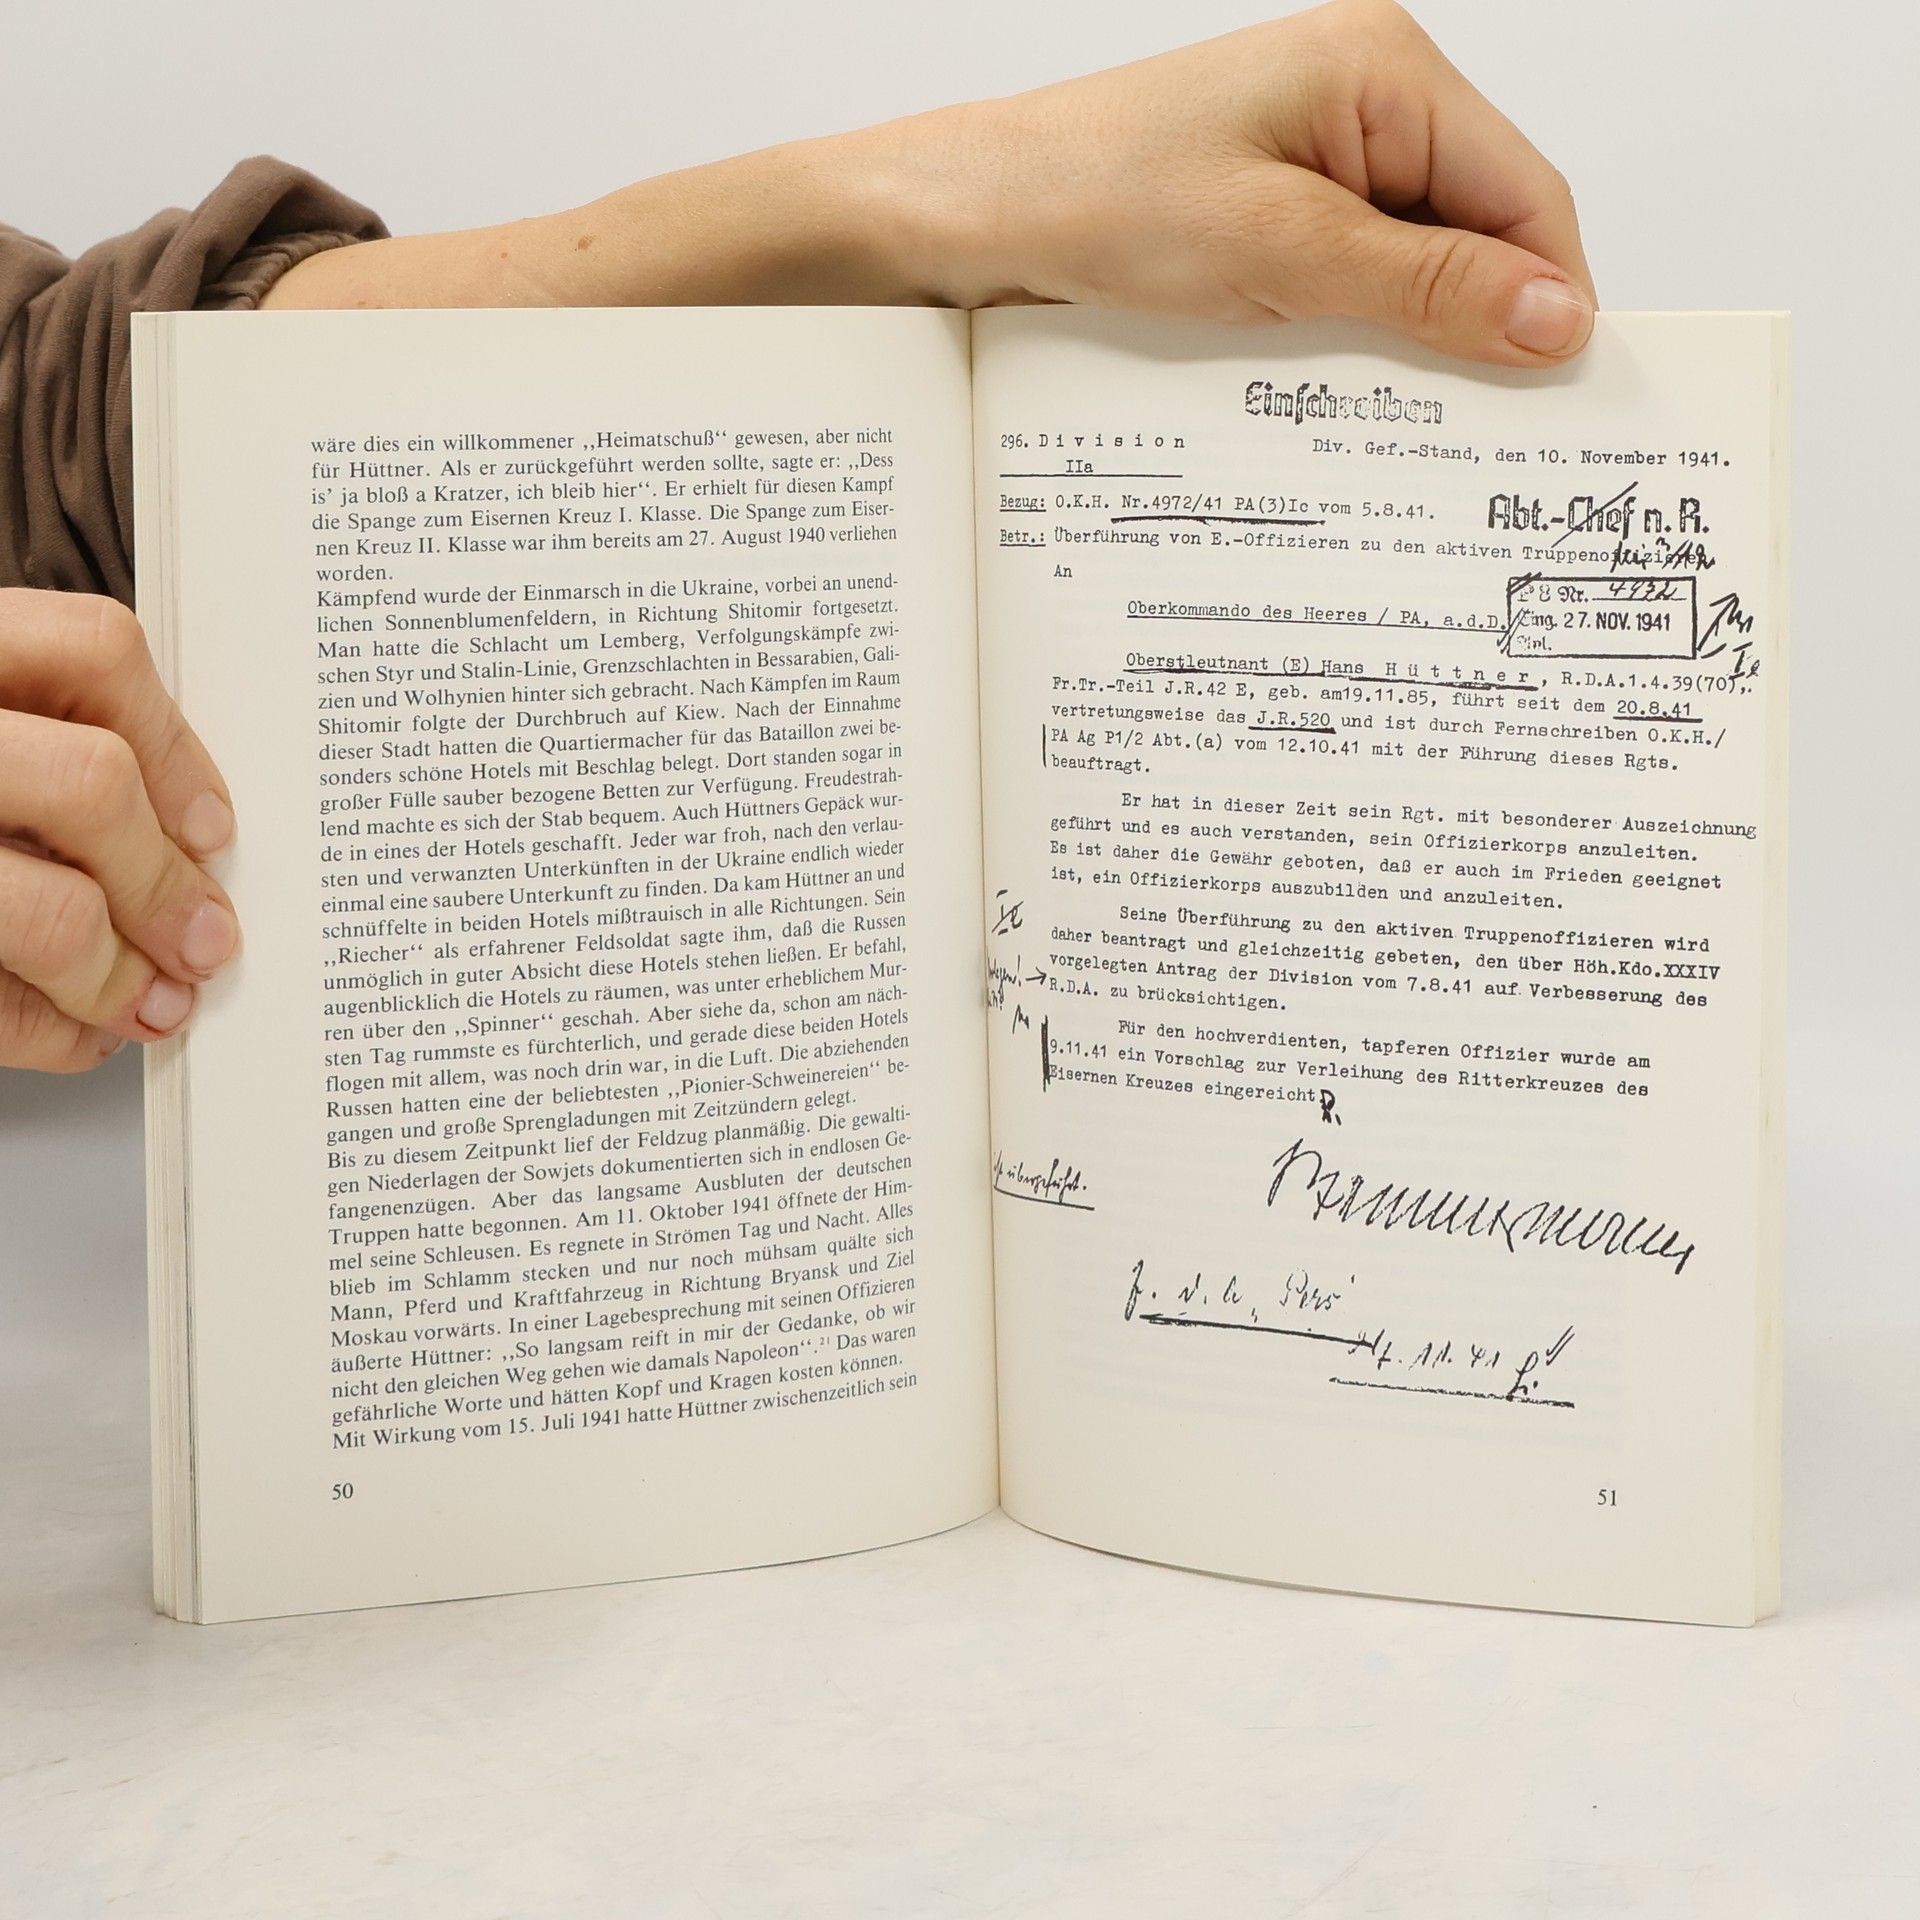 wäre dies ein willkommener ,,Heimatschuß“ gewesen, aber nicht
für Hüttner. Als er zurückgeführt werden sollte, sagte er: ,,Dess
is’ ja bloß a Kratzer, ich bleib hier“. Er erhielt für diesen Kampf
die Spange zum Eisernen Kreuz I. Klasse. Die Spange zum Eiser-
nen Kreuz II. Klasse war ihm bereits am 27. August 1940 verliehen
worden.
Kämpfend wurde der Einmarsch in die Ukraine, vorbei an unend-
lichen Sonnenblumenfeldern, in Richtung Shitomir fortgesetzt.
Man hatte die Schlacht um Lemberg, Verfolgungskämpfe zwi-
schen Styr und Stalin-Linie, Grenzschlachten in Bessarabien, Gali-
zien und Wolhynien hinter sich gebracht. Nach Kämpfen im Raum
Shitomir folgte der Durchbruch auf Kiew. Nach der Einnahme
dieser Stadt hatten die Quartiermacher für das Bataillon zwei be-
sonders schöne Hotels mit Beschlag belegt. Dort standen sogar in
großer Fülle sauber bezogene Betten zur Verfügung. Freudestrah-
lend machte es sich der Stab bequem. Auch Hüttners Gepäck wur-
de in eines der Hotels geschafft. Jeder war froh, nach den verlau-
sten und verwanzten Unterkünften in der Ukraine endlich wieder
einmal eine saubere Unterkunft zu finden. Da kam Hüttner an und
schnüffelte in beiden Hotels mißtrauisch in alle Richtungen. Sein
,,Riecher“ als erfahrener Feldsoldat sagte ihm, daß die Russen
unmöglich in guter Absicht diese Hotels stehen ließen. Er befahl,
augenblicklich die Hotels zu räumen, was unter erheblichem Mur-
ren über den ,,Spinner“ geschah. Aber siehe da, schon am näch-
sten Tag rummste es fürchterlich, und gerade diese beiden Hotels
flogen mit allem, was noch drin war, in die Luft. Die abziehenden
Russen hatten eine der beliebtesten ,,Pionier-Schweinereien“ be-
gangen und große Sprengladungen mit Zeitzündern gelegt.
Bis zu diesem Zeitpunkt lief der Feldzug planmäßig. Die gewalti-
gen Niederlagen der Sowjets dokumentierten sich in endlosen Ge-
fangenenzügen. Aber das langsame Ausbluten der deutschen
Truppen hatte begonnen. Am 11. Oktober 1941 öffnete der Him-
mel seine Schleusen. Es regnete in Strömen Tag und Nacht. Alles
blieb im Schlamm stecken und nur noch mühsam quälte sich
Mann, Pferd und Kraftfahrzeug in Richtung Bryansk und Ziel
Moskau vorwärts. In einer Lagebesprechung mit seinen Offizieren
äußerte Hüttner: ,,So langsam reift in mir der Gedanke, ob wir
nicht den gleichen Weg gehen wie damals Napoleon“.²¹ Das waren
gefährliche Worte und hätten Kopf und Kragen kosten können.
Mit Wirkung vom 15. Juli 1941 hatte Hüttner zwischenzeitlich sein
50
Einschreiben
296. Division
IIa
Div. Gef.-Stand, den 10. November 1941.
Bezug: O.K.H. Nr.4972/41 PA(3)Ic vom 5.8.41.
Abt.-Chef n. R.
Betr.: Überführung von E.-Offizieren zu den aktiven Truppenoffizieren
An
Oberkommando des Heeres / PA, a.d.D.
Nr. 4972
Eing. 27. NOV. 1941
Oberstleutnant (E) Hans Hüttner, R.D.A.1.4.39(70),
Fr.Tr.-Teil J.R.42 E, geb. am19.11.85, führt seit dem 20.8.41
vertretungsweise das J.R.520 und ist durch Fernschreiben O.K.H./
PA Ag P1/2 Abt.(a) vom 12.10.41 mit der Führung dieses Rgts.
beauftragt.
Er hat in dieser Zeit sein Rgt. mit besonderer Auszeichnung
geführt und es auch verstanden, sein Offizierkorps anzuleiten.
Es ist daher die Gewähr geboten, daß er auch im Frieden geeignet
ist, ein Offizierkorps auszubilden und anzuleiten.
Seine Überführung zu den aktiven Truppenoffizieren wird
daher beantragt und gleichzeitig gebeten, den über Höh.Kdo.XXXIV
vorgelegten Antrag der Division vom 7.8.41 auf Verbesserung des
R.D.A. zu brücksichtigen.
Für den hochverdienten, tapferen Offizier wurde am
9.11.41 ein Vorschlag zur Verleihung des Ritterkreuzes des
Eisernen Kreuzes eingereicht.
übergeführt.
z. d. A. Pers
27. 11. 41
51